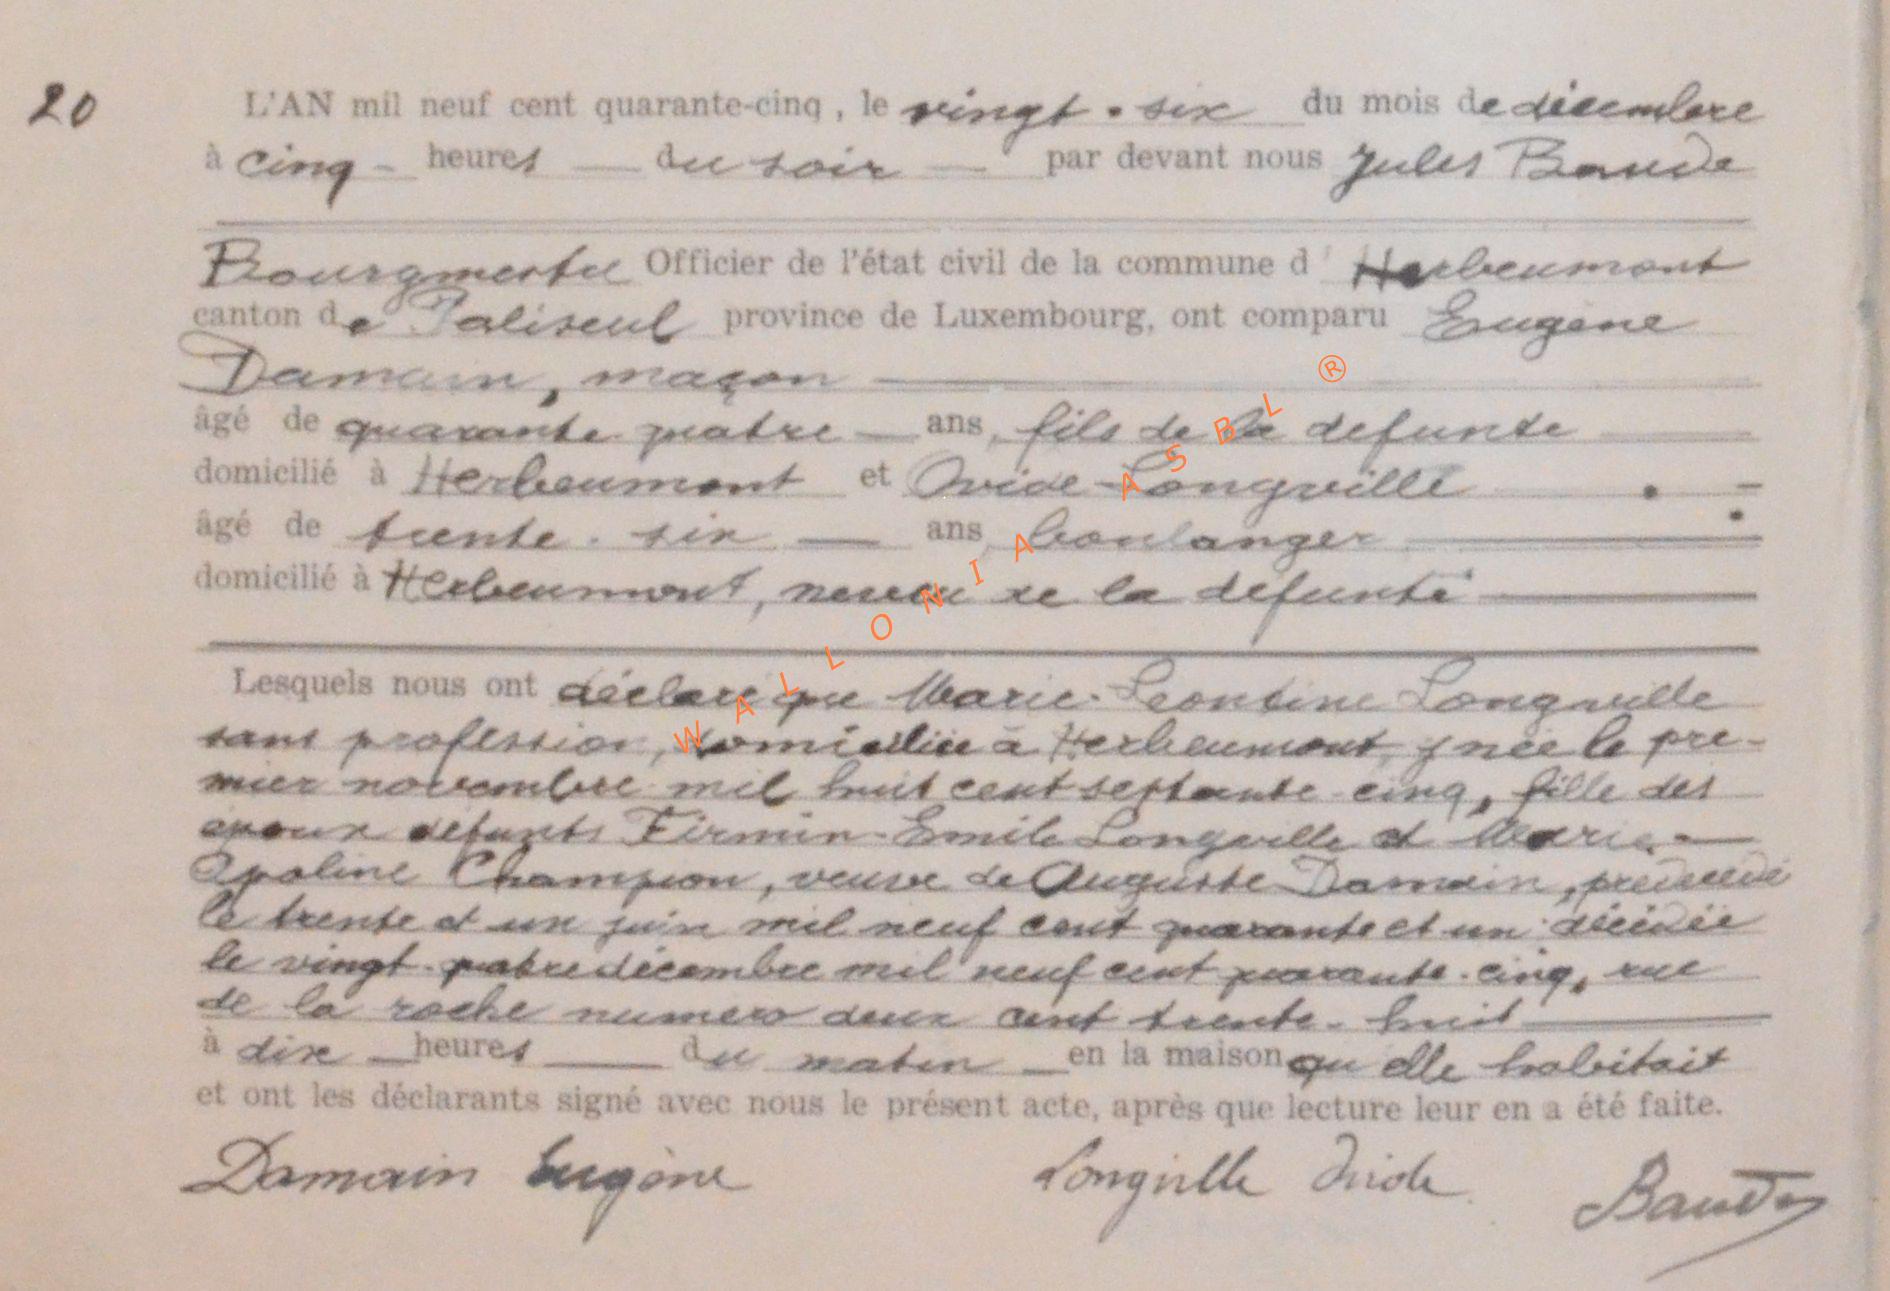 20
L'AN mil neuf cent quarante-cinq, le vingt-six du mois de décembre
à cinq - heures — du soir — par devant nous Jules Baude
Bourgmestre Officier de l'état civil de la commune d' Herbeumont
canton de Paliseul province de Luxembourg, ont comparu Eugène
Damain, maçon
âgé de quarante quatre — ans, fils de la défunte
domicilié à Herbeumont et Ovide Longville
âgé de trente-six — ans, boulanger
domicilié à Herbeumont, neveu de la défunte
Lesquels nous ont déclaré que Marie-Léontine Longville
sans profession, domiciliée à Herbeumont, y née le pre-
mier novembre mil huit cent septante-cinq, fille des
époux défunts Firmin-Emile Longville et Marie-
Apoline Champion, veuve de Auguste Damain, prédécédé
le trente et un juin mil neuf cent quarante et un décédée
le vingt-quatre décembre mil neuf cent quarante-cinq, rue
de la roche numero deux cent trente-huit
à dix — heures — du matin — en la maison qu'elle habitait
et ont les déclarants signé avec nous le présent acte, après que lecture leur en a été faite.
Damain Eugène Longville Ovide Baude
WALLONIA ASBL ®